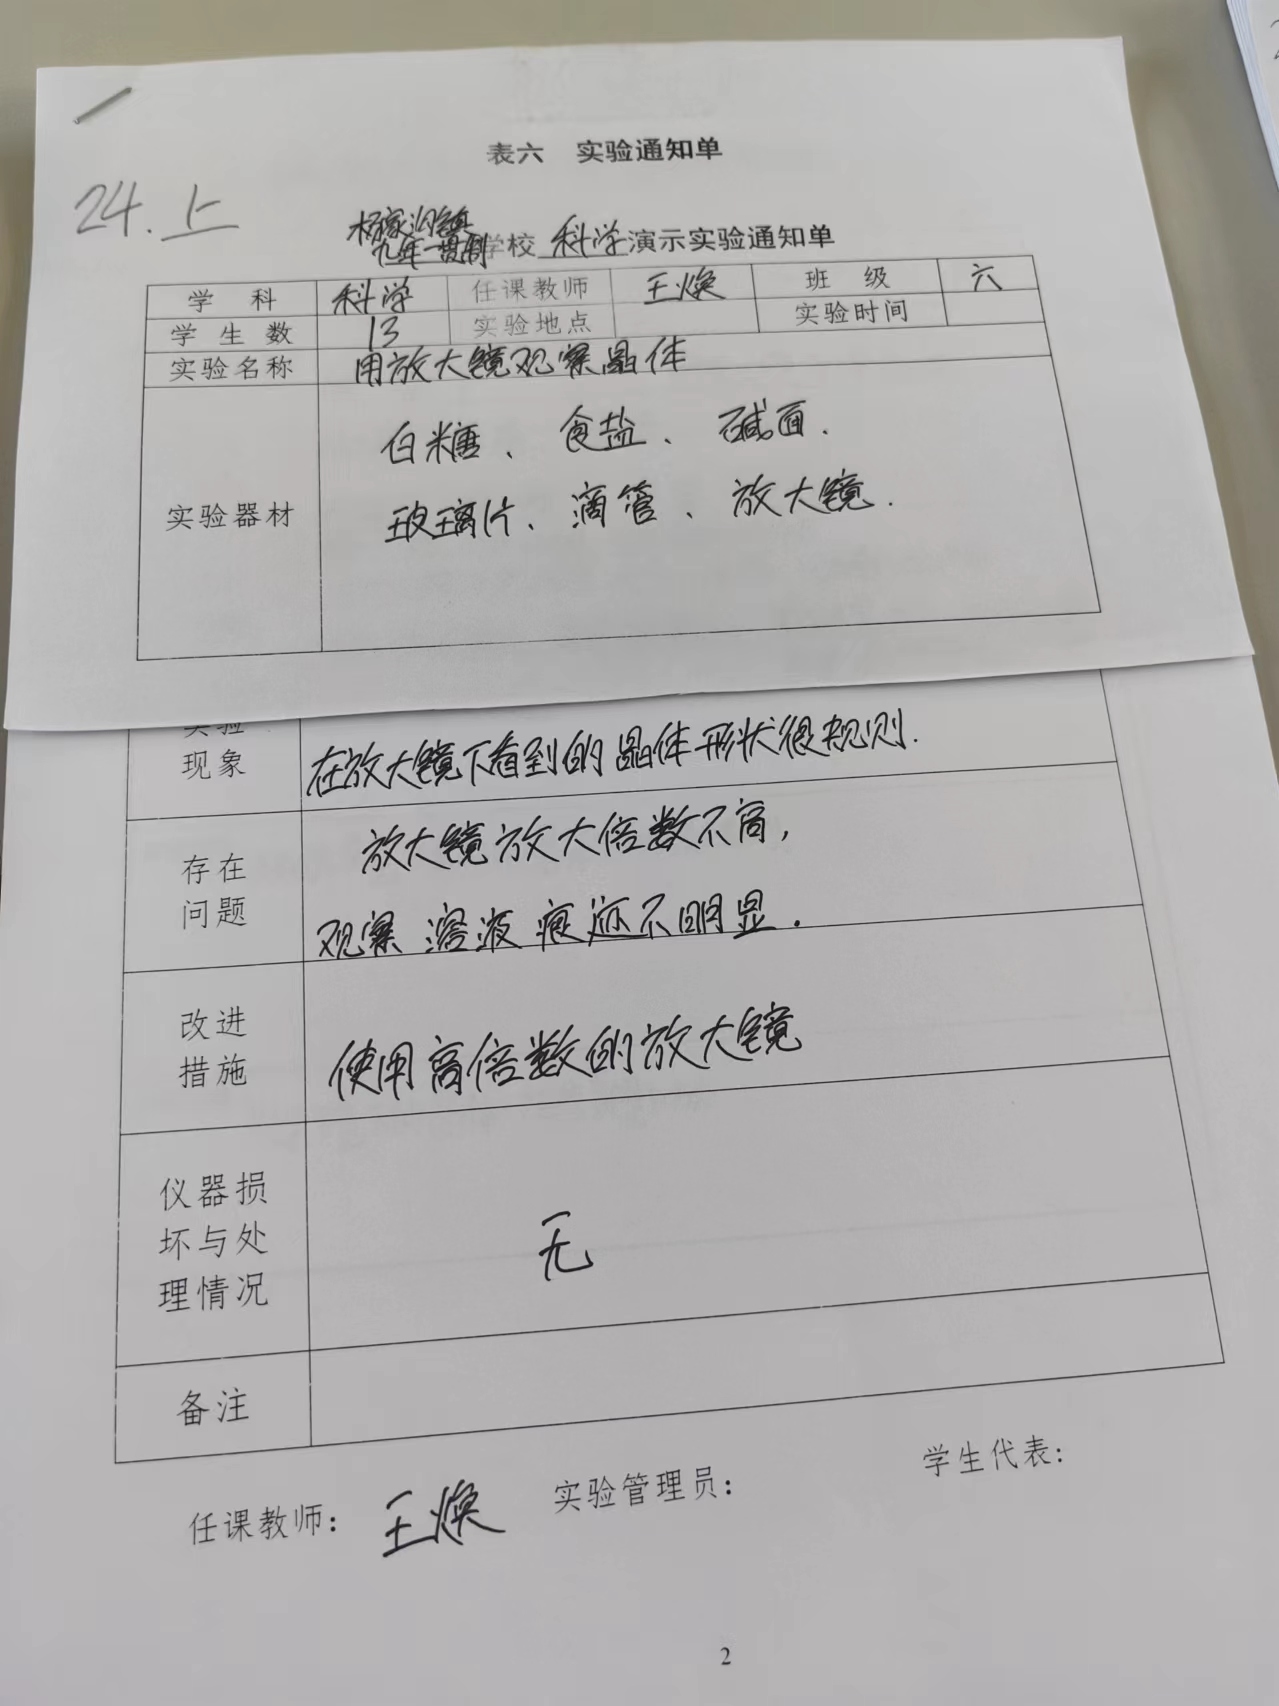 表六 实验通知单
24.上
杨家沟镇
九年一贯制学校 科学演示实验通知单
学 科 科学 任课教师 王焕 班 级 六
学 生 数 13 实验地点 实验时间
实验名称 用放大镜观察晶体
白糖、食盐、碱面.
实验器材
玻璃片、滴管、放大镜.
实验
现象 在放大镜下看到的晶体形状很规则.
存在
问题
放大镜放大倍数不高,
观察溶液痕迹不明显.
改进
措施
使用高倍数的放大镜
仪器损
坏与处
理情况
无
备注
任课教师: 王焕 实验管理员: 学生代表:
2